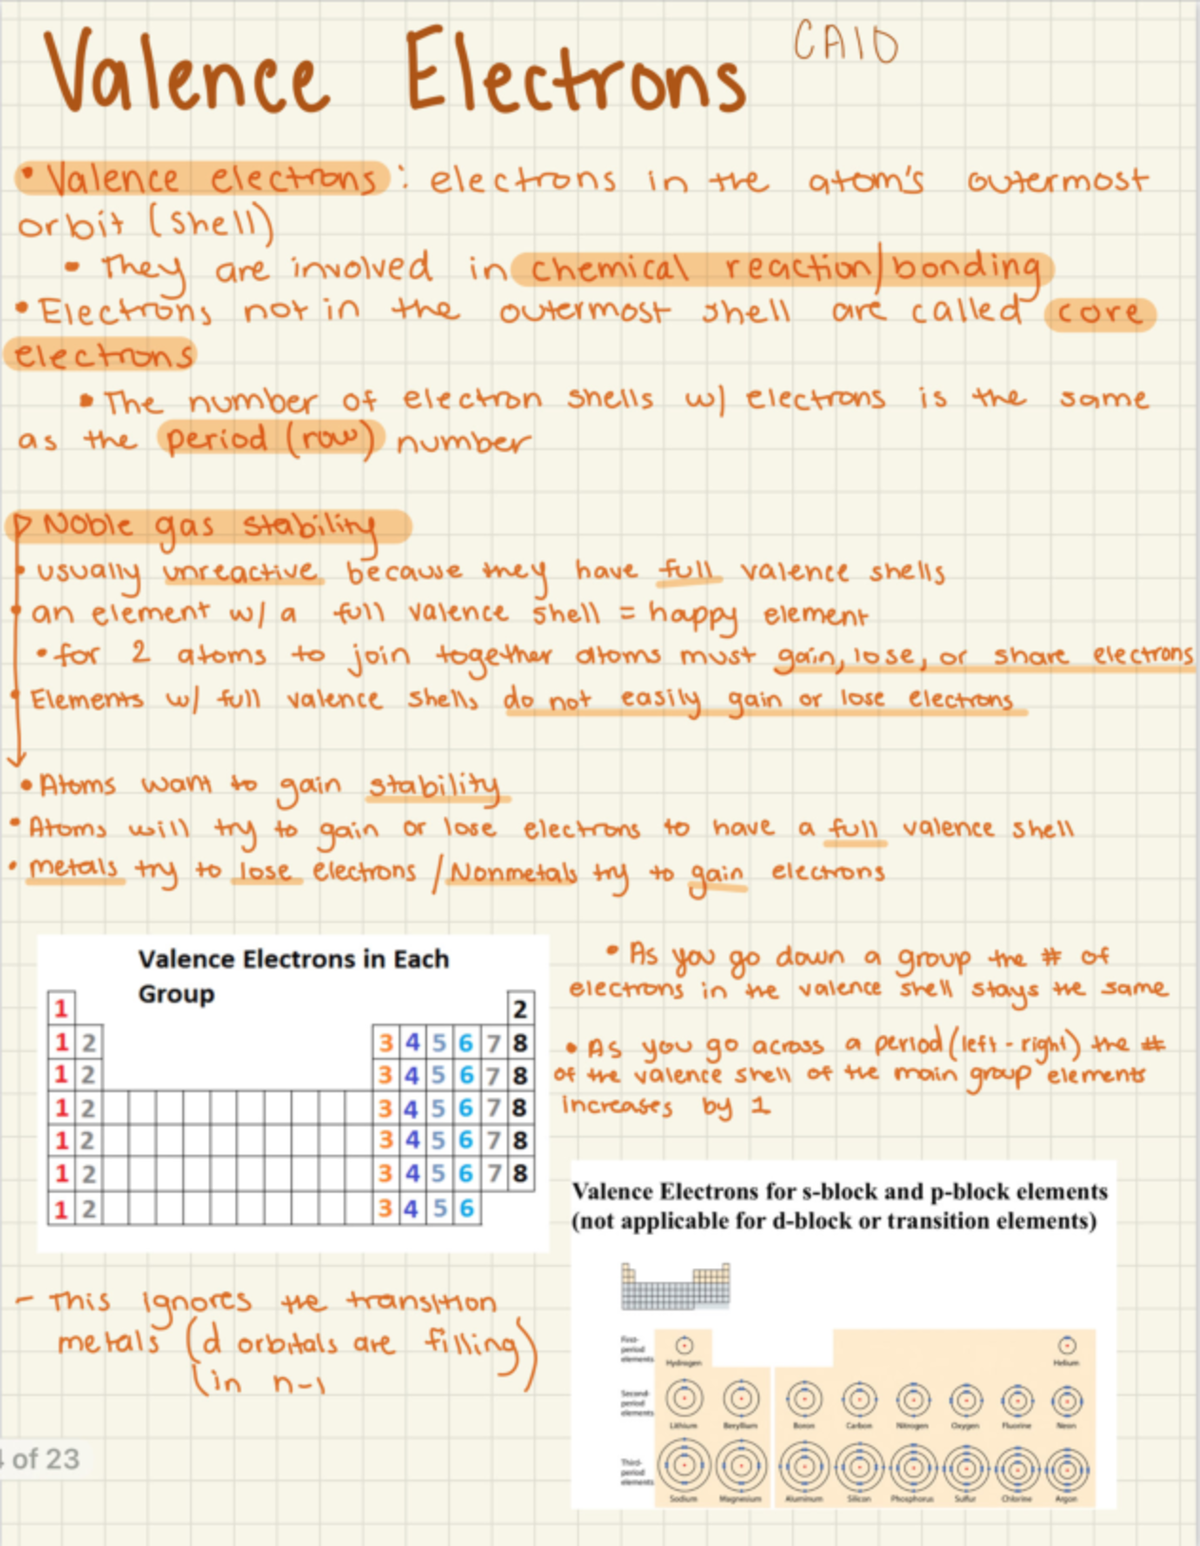 Valence Electrons CA10
• Valence electrons: electrons in the atom's outermost
orbit (shell)
• They are involved in chemical reaction/bonding
• Electrons not in the outermost shell are called core
electrons
• The number of electron shells w/ electrons is the same
as the period (row) number
▷ Noble gas stability
• usually unreactive because they have full valence shells
• an element w/ a full valence shell = happy element
• for 2 atoms to join together atoms must gain, lose, or share electrons
• Elements w/ full valence shells do not easily gain or lose electrons
• Atoms want to gain stability
• Atoms will try to gain or lose electrons to have a full valence shell
• metals try to lose electrons / Nonmetals try to gain electrons
Valence Electrons in Each
Group
1 2
1 2 3 4 5 6 7 8
1 2 3 4 5 6 7 8
1 2 3 4 5 6 7 8
1 2 3 4 5 6 7 8
1 2 3 4 5 6 7 8
1 2 3 4 5 6
• As you go down a group the # of
electrons in the valence shell stays the same
• As you go across a period (left-right) the #
of the valence shell of the main group elements
increases by 1
Valence Electrons for s-block and p-block elements
(not applicable for d-block or transition elements)
First-
period
elements
Hydrogen Helium
Second-
period
elements
Lithium Beryllium Boron Carbon Nitrogen Oxygen Fluorine Neon
Third-
period
elements
Sodium Magnesium Aluminum Silicon Phosphorus Sulfur Chlorine Argon
- This ignores the transition
metals (d orbitals are filling)
(in n-1
of 23